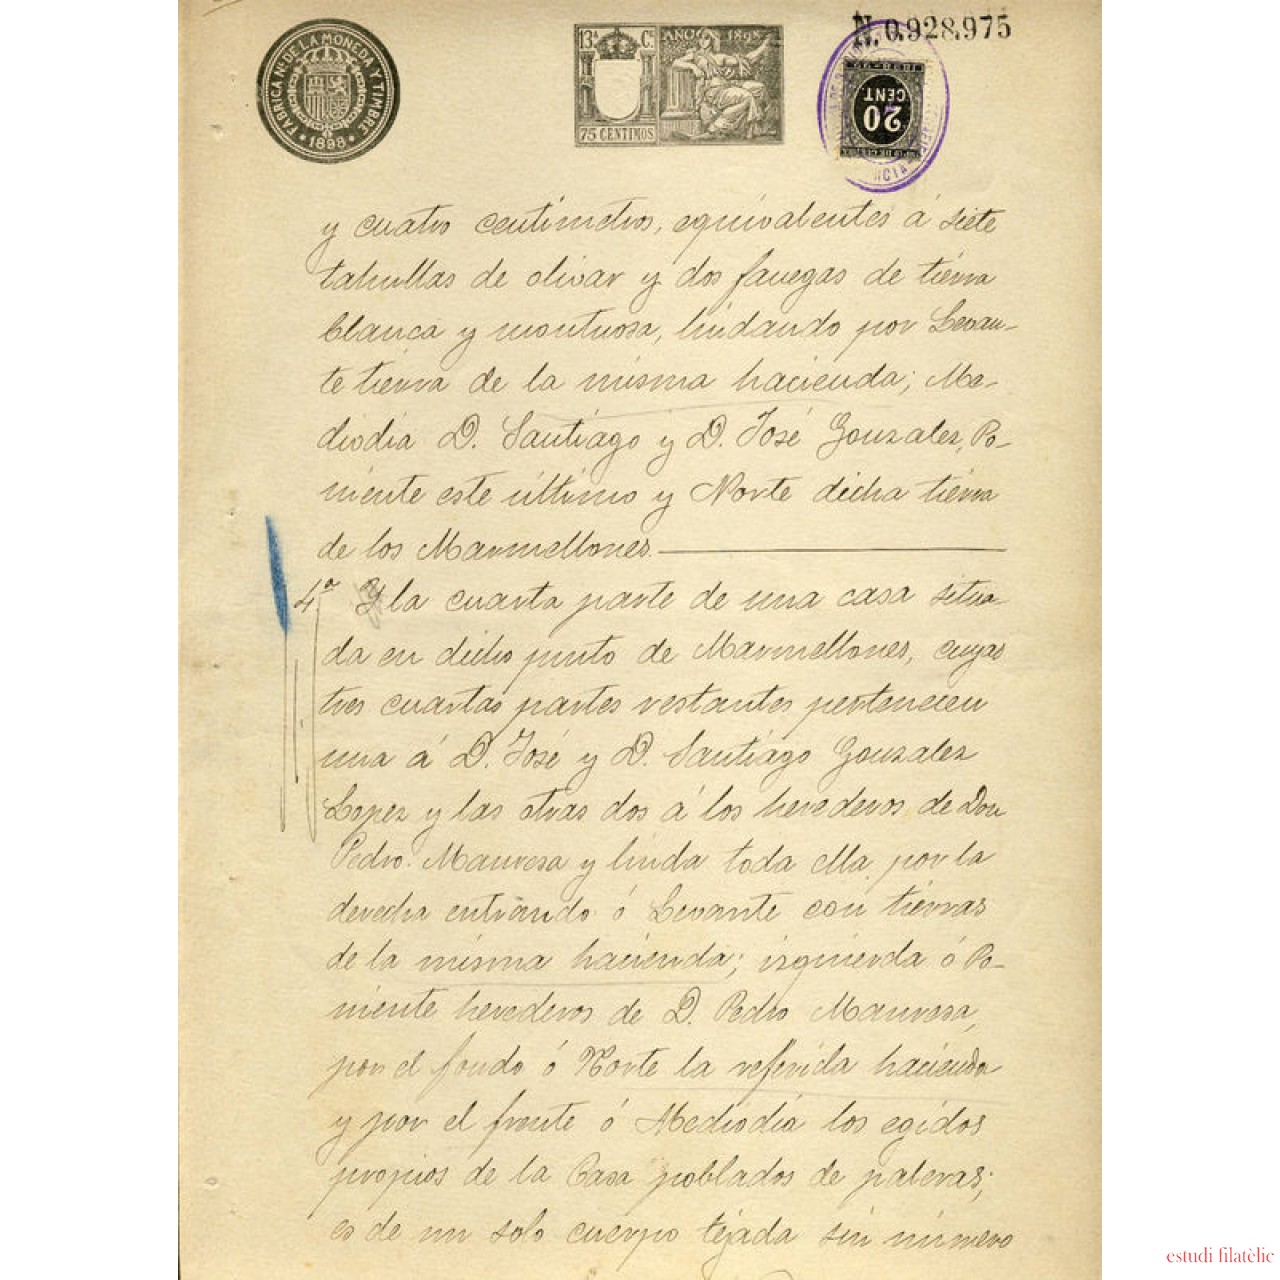 FABRICA Nal. DE LA MONEDA Y TIMBRE
· 1898 ·
13ª Cs. AÑO 1898
75 CENTIMOS
N. 0.928.975
1898-99
20
CENT.
y cuatro centímetros, equivalentes á siete
tahullas de olivar y dos fanegas de tierra
blanca y montuosa, lindando por Levan-
te tierra de la misma hacienda; Me-
diodia D. Santiago y D. José Gonzalez, Po-
niente este último y Norte dicha tierra
de los Marmellones.
4ª Y la cuarta parte de una casa situa-
da en dicho punto de Marmellones, cuyas
tres cuartas partes restantes pertenecen
una á D. José y D. Santiago Gonzalez
Lopez y las otras dos á los herederos de Don
Pedro Manresa y linda toda ella por la
derecha entrando ó Levante con tierras
de la misma hacienda; izquierda ó Po-
niente herederos de D. Pedro Manresa,
por el fondo ó Norte la referida hacienda
y por el frente ó Mediodia los egidos
propios de la Casa poblados de paleras;
es de un solo cuerpo tejada sin número
estudi filatèlic